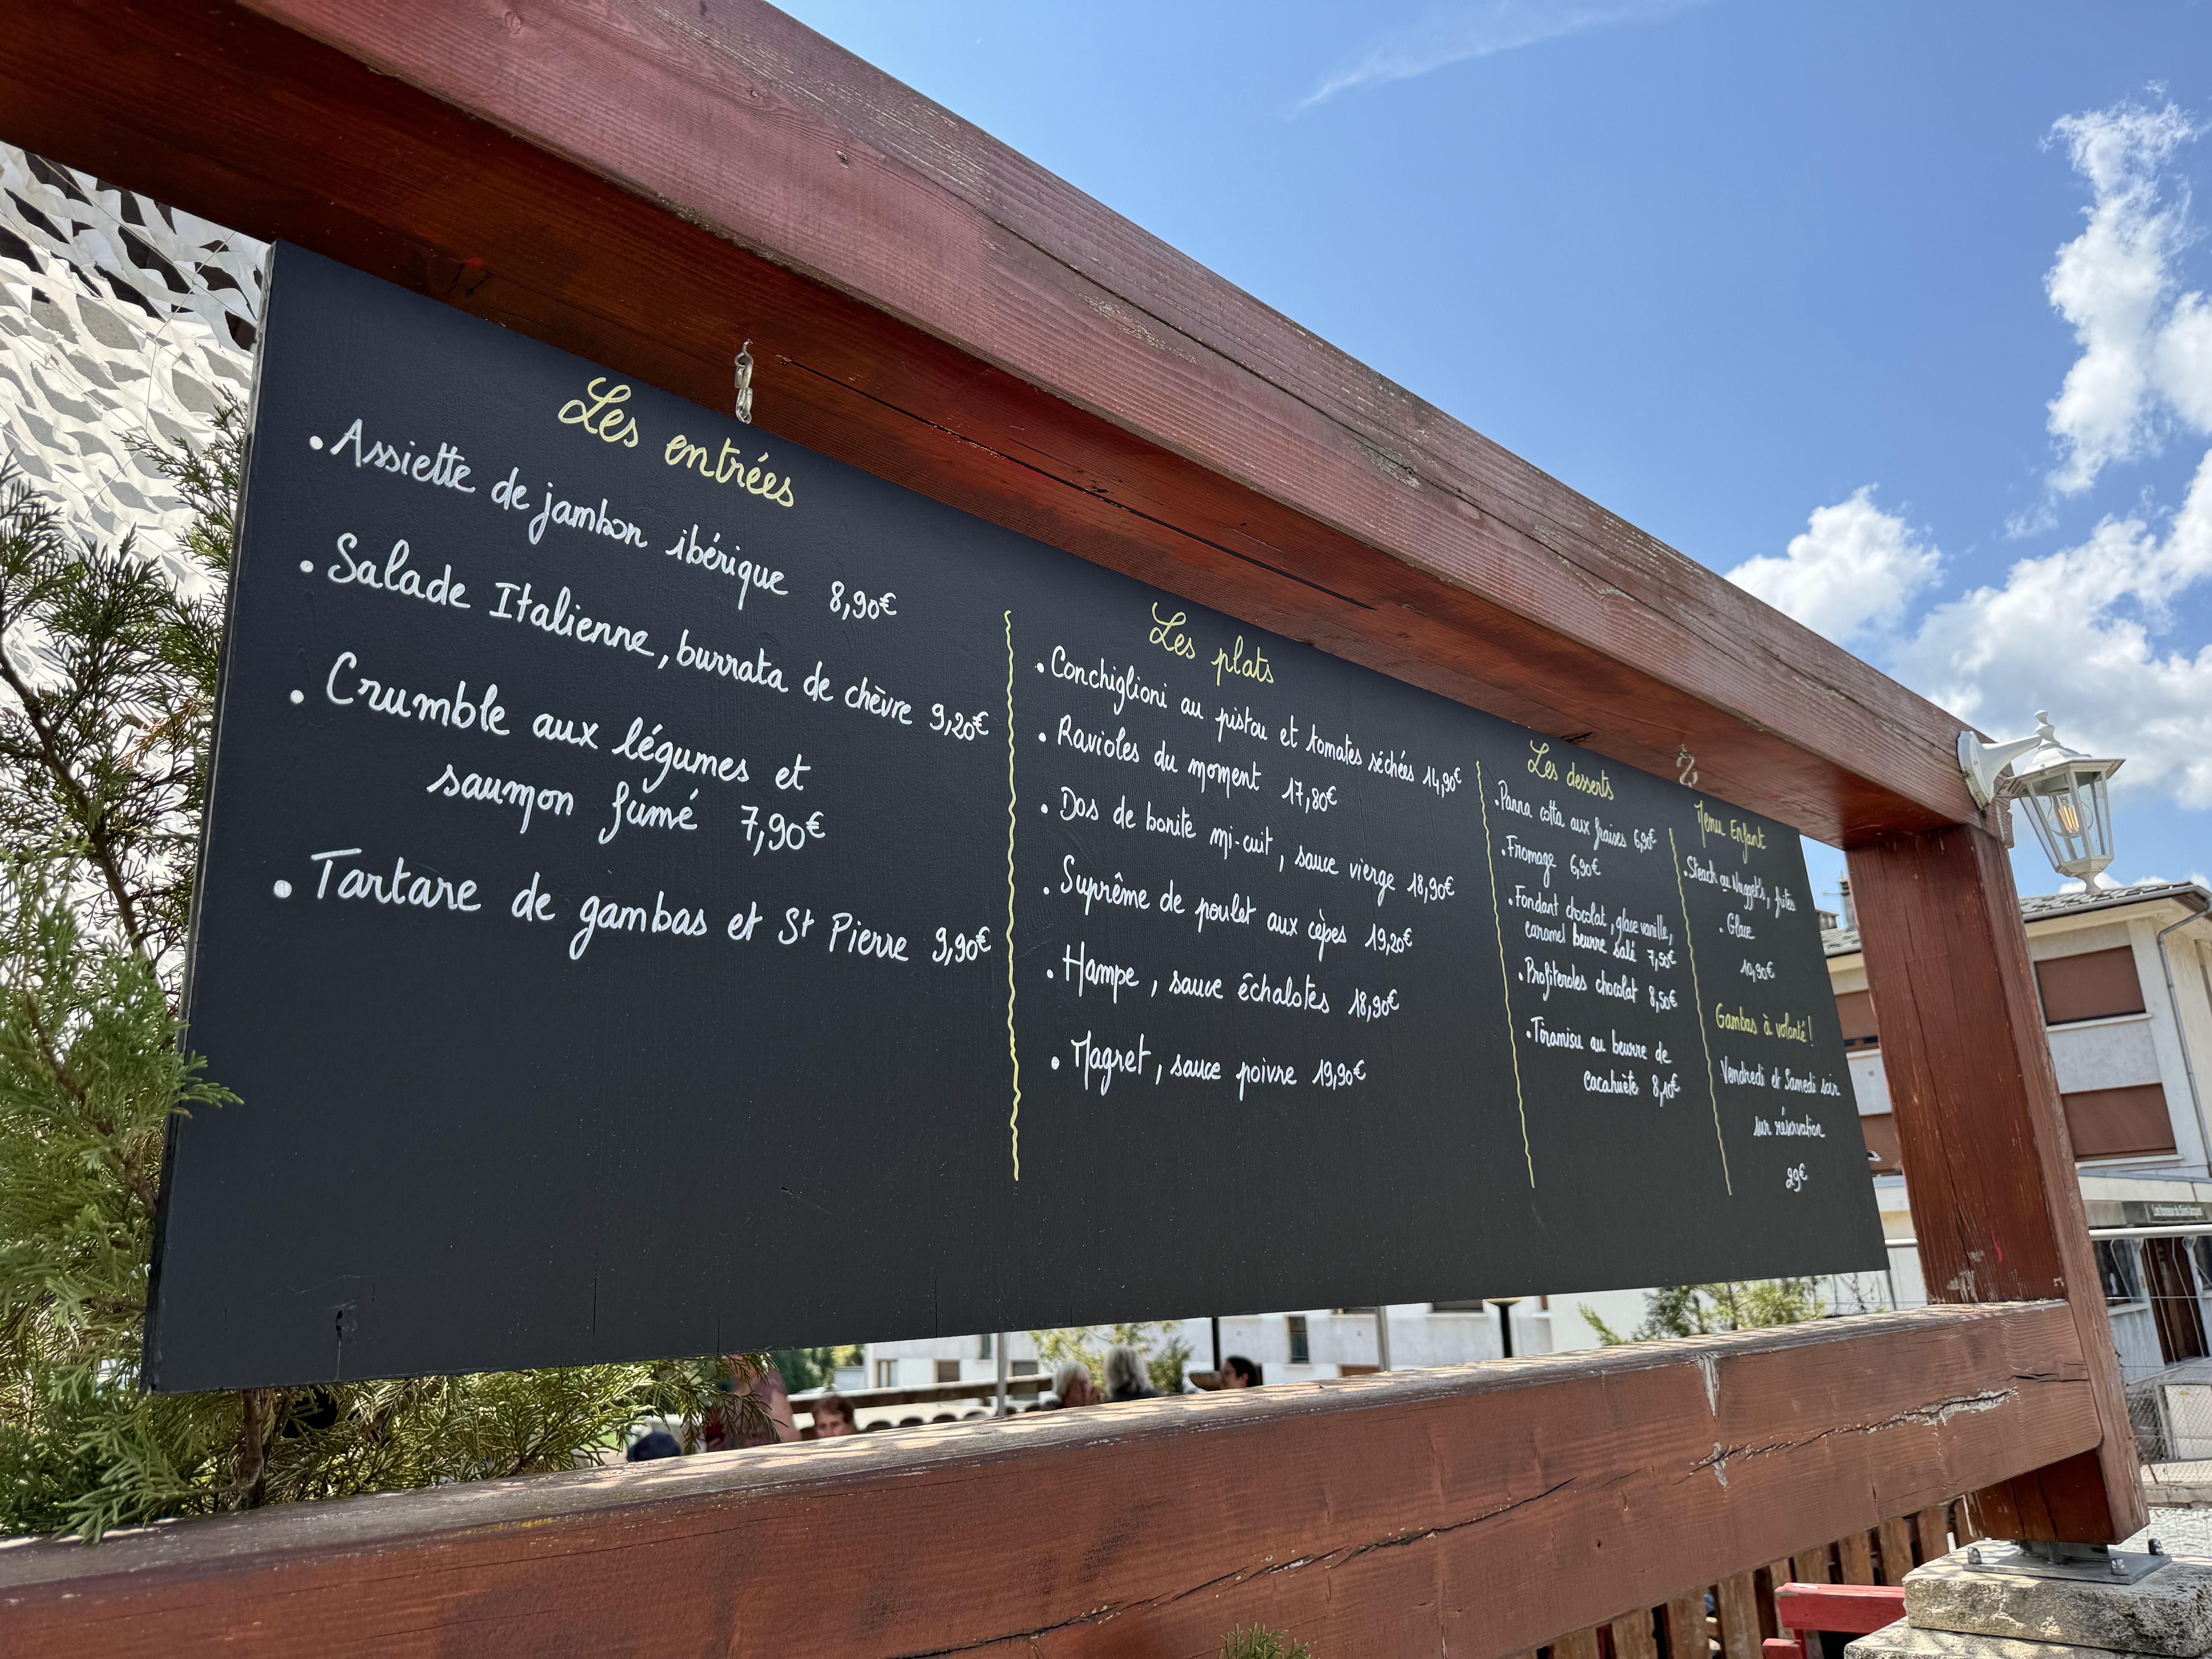 Les entrées
• Assiette de jambon ibérique 8,90€
• Salade Italienne, burrata de chèvre 9,20€
• Crumble aux légumes et
saumon fumé 7,90€
• Tartare de gambas et St Pierre 9,90€
Les plats
• Conchiglioni au pistou et tomates séchées 14,90€
• Ravioles du moment 17,80€
• Dos de bonite mi-cuit, sauce vierge 18,90€
• Suprême de poulet aux cèpes 19,20€
• Hampe, sauce échalotes 18,90€
• Magret, sauce poivre 19,90€
Les desserts
• Panna cotta aux fraises 6,90€
• Fromage 6,90€
• Fondant chocolat, glace vanille,
caramel beurre salé 7,50€
• Profiteroles chocolat 8,50€
• Tiramisu au beurre de
cacahuète 8,10€
Menu Enfant
• Steack ou Nugget's, frites
• Glace
10,90€
Gambas à volonté!
Vendredi et Samedi soir
sur réservation
29€